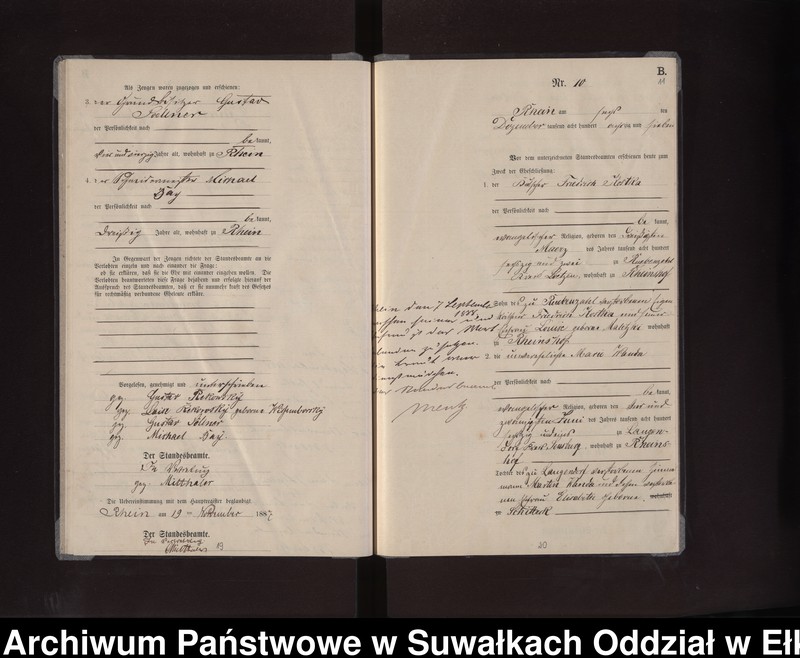 Als Zeugen waren zugezogen und erschienen:
3. der Grundbesitzer Gustav
Sallner
der Persönlichkeit nach
bekannt,
vier und vierzig Jahre alt, wohnhaft zu Rhein
4. der Schneidermeister Michael
Day
der Persönlichkeit nach
bekannt,
dreißig Jahre alt, wohnhaft zu Rhein
In Gegenwart der Zeugen richtete der Standesbeamte an die
Verlobten einzeln und nach einander die Frage:
ob sie erklären, daß sie die Ehe mit einander eingehen wollen. Die
Verlobten beantworteten diese Frage bejahend und erfolgte hierauf der
Ausspruch des Standesbeamten, daß er sie nunmehr kraft des Gesetzes
für rechtmäßig verbundene Eheleute erkläre.
Vorgelesen, genehmigt und unterschrieben
gez. Gustav
gez. geborene
gez. Gustav Sallner
gez. Michael Day
Der Standesbeamte.
In Vertretung
gez. Mitthaler
Die Uebereinstimmung mit dem Hauptregister beglaubigt
Rhein am 19 ten November 1887
Der Standesbeamte.
In Vertretung
Mitthaler
19
B.
11
Nr. 10
Rhein am sechs ten
Dezember tausend acht hundert achtzig und sieben
Vor dem unterzeichneten Standesbeamten erschienen heute zum
Zweck der Eheschließung:
1. der Friedrich Kostka
der Persönlichkeit nach
bekannt,
evangelischer Religion, geboren den dreißigsten
Maerz des Jahres tausend acht hundert
sechszig und zwei zu Rübenzahl
Kreis Lötzen, wohnhaft zu Rheinshof
Sohn des zu Rübenzahl verstorbenen
Friedrich Kostka und seiner
Ehefrau Louise geborene wohnhaft
zu Rheinshof
2. die unverehelichte Marie Wanda
der Persönlichkeit nach
bekannt,
evangelischer Religion, geboren den vier und
zwanzigsten Juni des Jahres tausend acht hundert
sechszig und eins zu Langen-
dorf Kreis Sensburg, wohnhaft zu Rheins-
hof
Tochter des zu Langendorf verstorbenen Zimmer
mann Martin Wanda und dessen
Ehefrau Elisabeth geborene wohnhaft
zu
den 7 September
1888
das Wort
zu setzen.
Mentz
20
Archiwum Państwowe w Suwałkach Oddział w Ełk